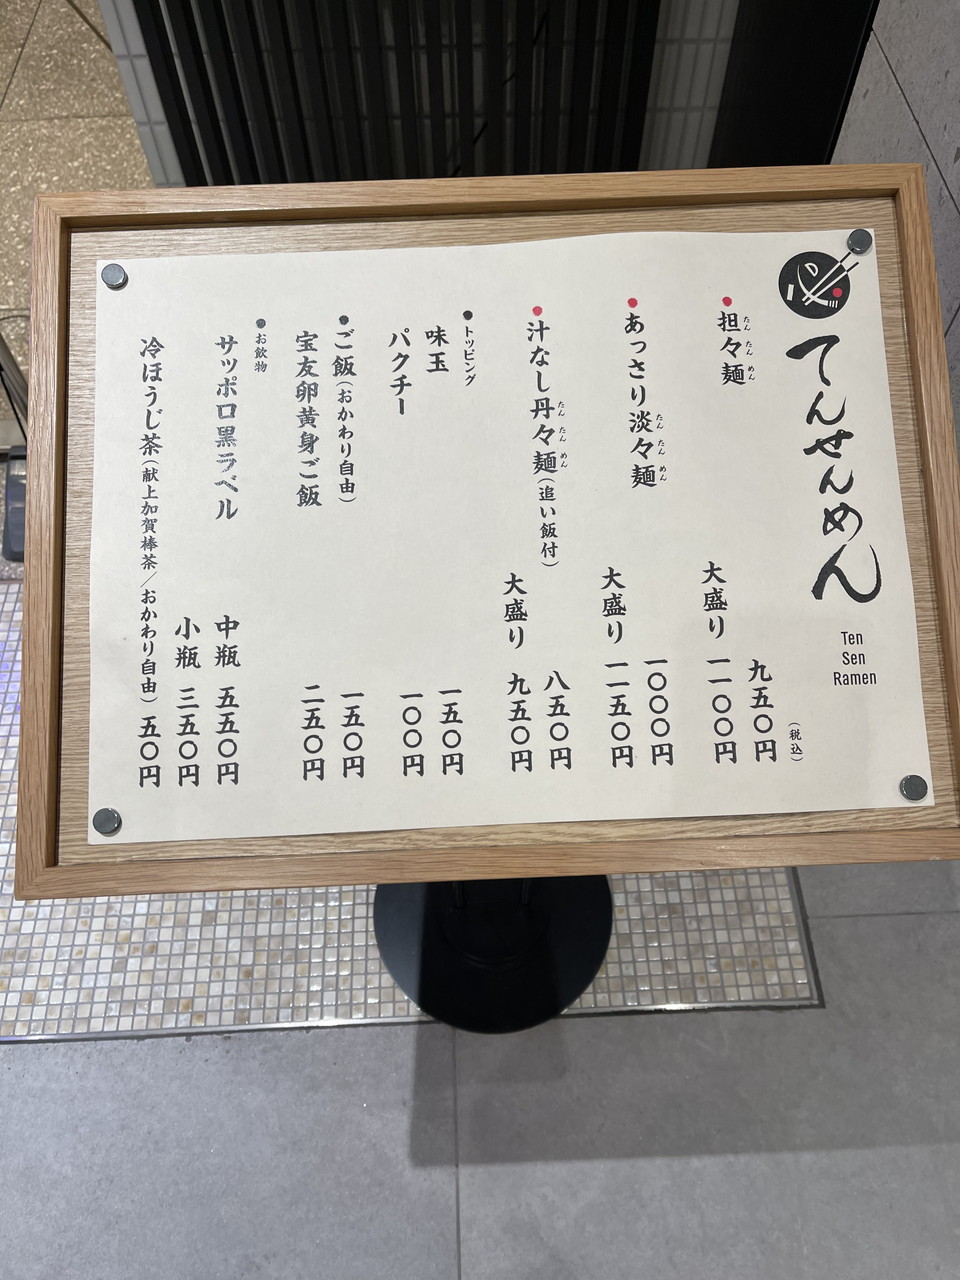 てんせんめん
Ten
Sen
Ramen
(税込)
担々麺 九五〇円
たんたんめん
大盛り 一一〇〇円
あっさり淡々麺 一〇〇〇円
たんたんめん
大盛り 一一五〇円
汁なし丹々麺(追い飯付) 八五〇円
たんたんめん
大盛り 九五〇円
トッピング
味玉 一五〇円
パクチー 一〇〇円
ご飯(おかわり自由) 一五〇円
宝友卵黄身ご飯 二五〇円
お飲物
サッポロ黒ラベル 中瓶 五五〇円
小瓶 三五〇円
冷ほうじ茶(献上加賀棒茶/おかわり自由) 五〇円